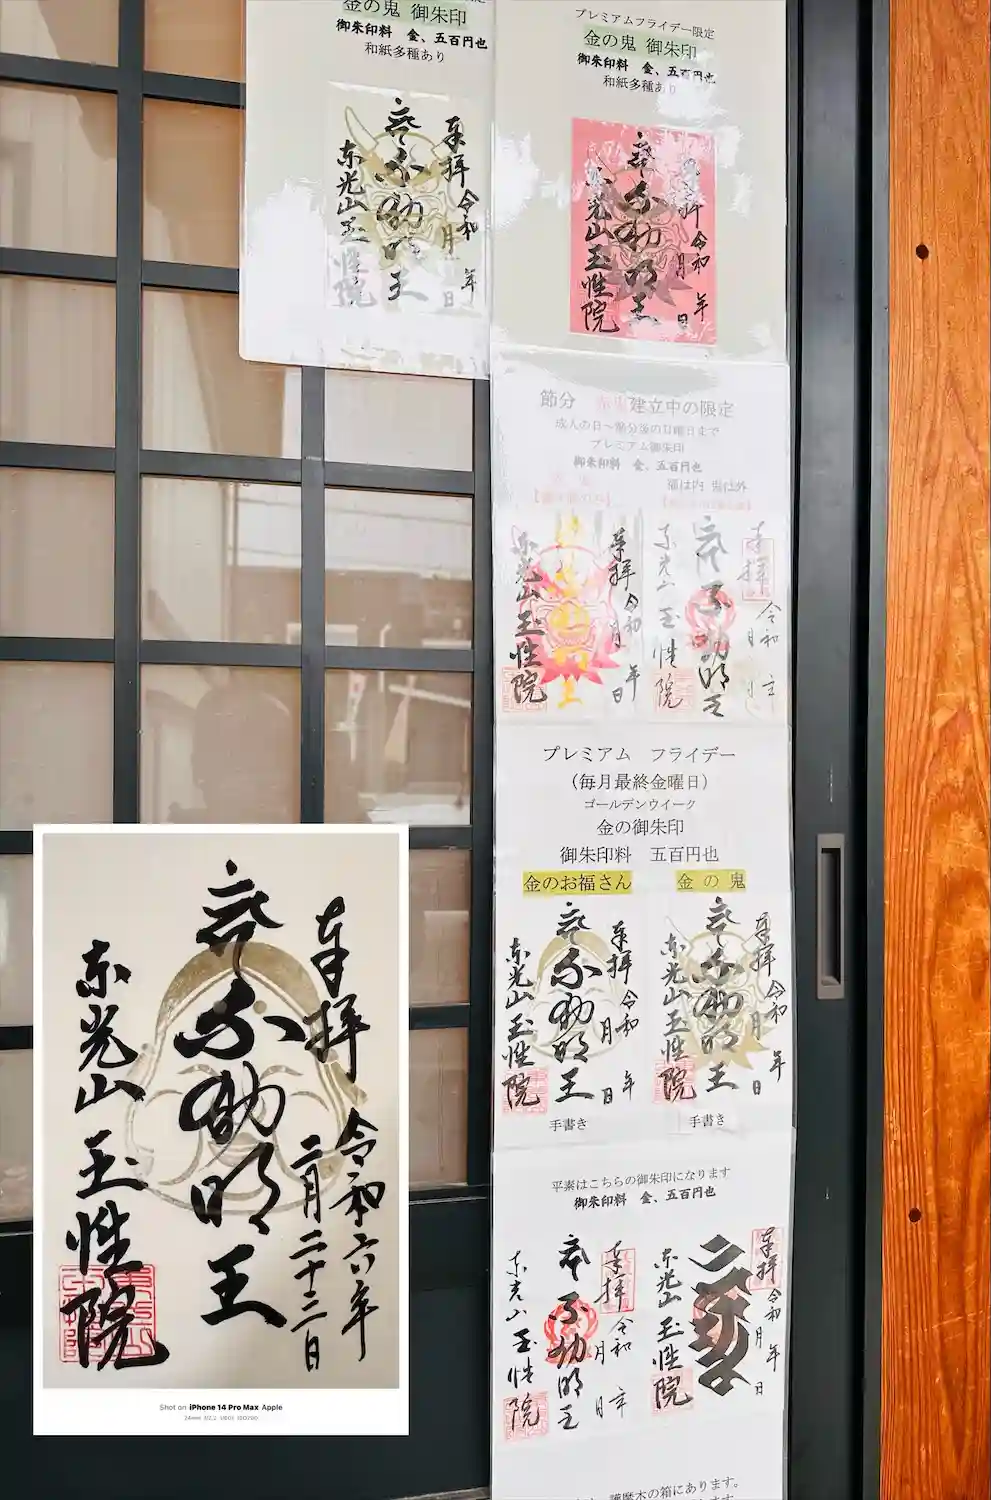 金の鬼 御朱印
御朱印料 金、五百円也
和紙多種あり
奉拝 令和 年 月 日
東光山玉性院
プレミアムフライデー限定
金の鬼 御朱印
御朱印料 金、五百円也
和紙多種あり
令和 年 月 日
東光山玉性院
節分 赤鬼建立中の限定
成人の日~節分後の日曜日まで
プレミアム御朱印
御朱印料 金、五百円也
福は内 鬼は外
奉拝 令和 年 月 日
東光山玉性院
奉拝
令和
東光山玉性院
プレミアム フライデー
(毎月最終金曜日)
ゴールデンウイーク
金の御朱印
御朱印料 五百円也
金のお福さん 金の鬼
奉拝 令和 年 月 日
東光山玉性院
手書き
奉拝 令和 年 月 日
東光山玉性院
手書き
平素はこちらの御朱印になります
御朱印料 金、五百円也
奉拝 令和 年 月 日
東光山玉性院
奉拝 令和 年 月 日
東光山玉性院
護摩木の箱にあります。
奉拝 令和六年
二月二十三日
東光山玉性院
Shot on iPhone 14 Pro Max Apple